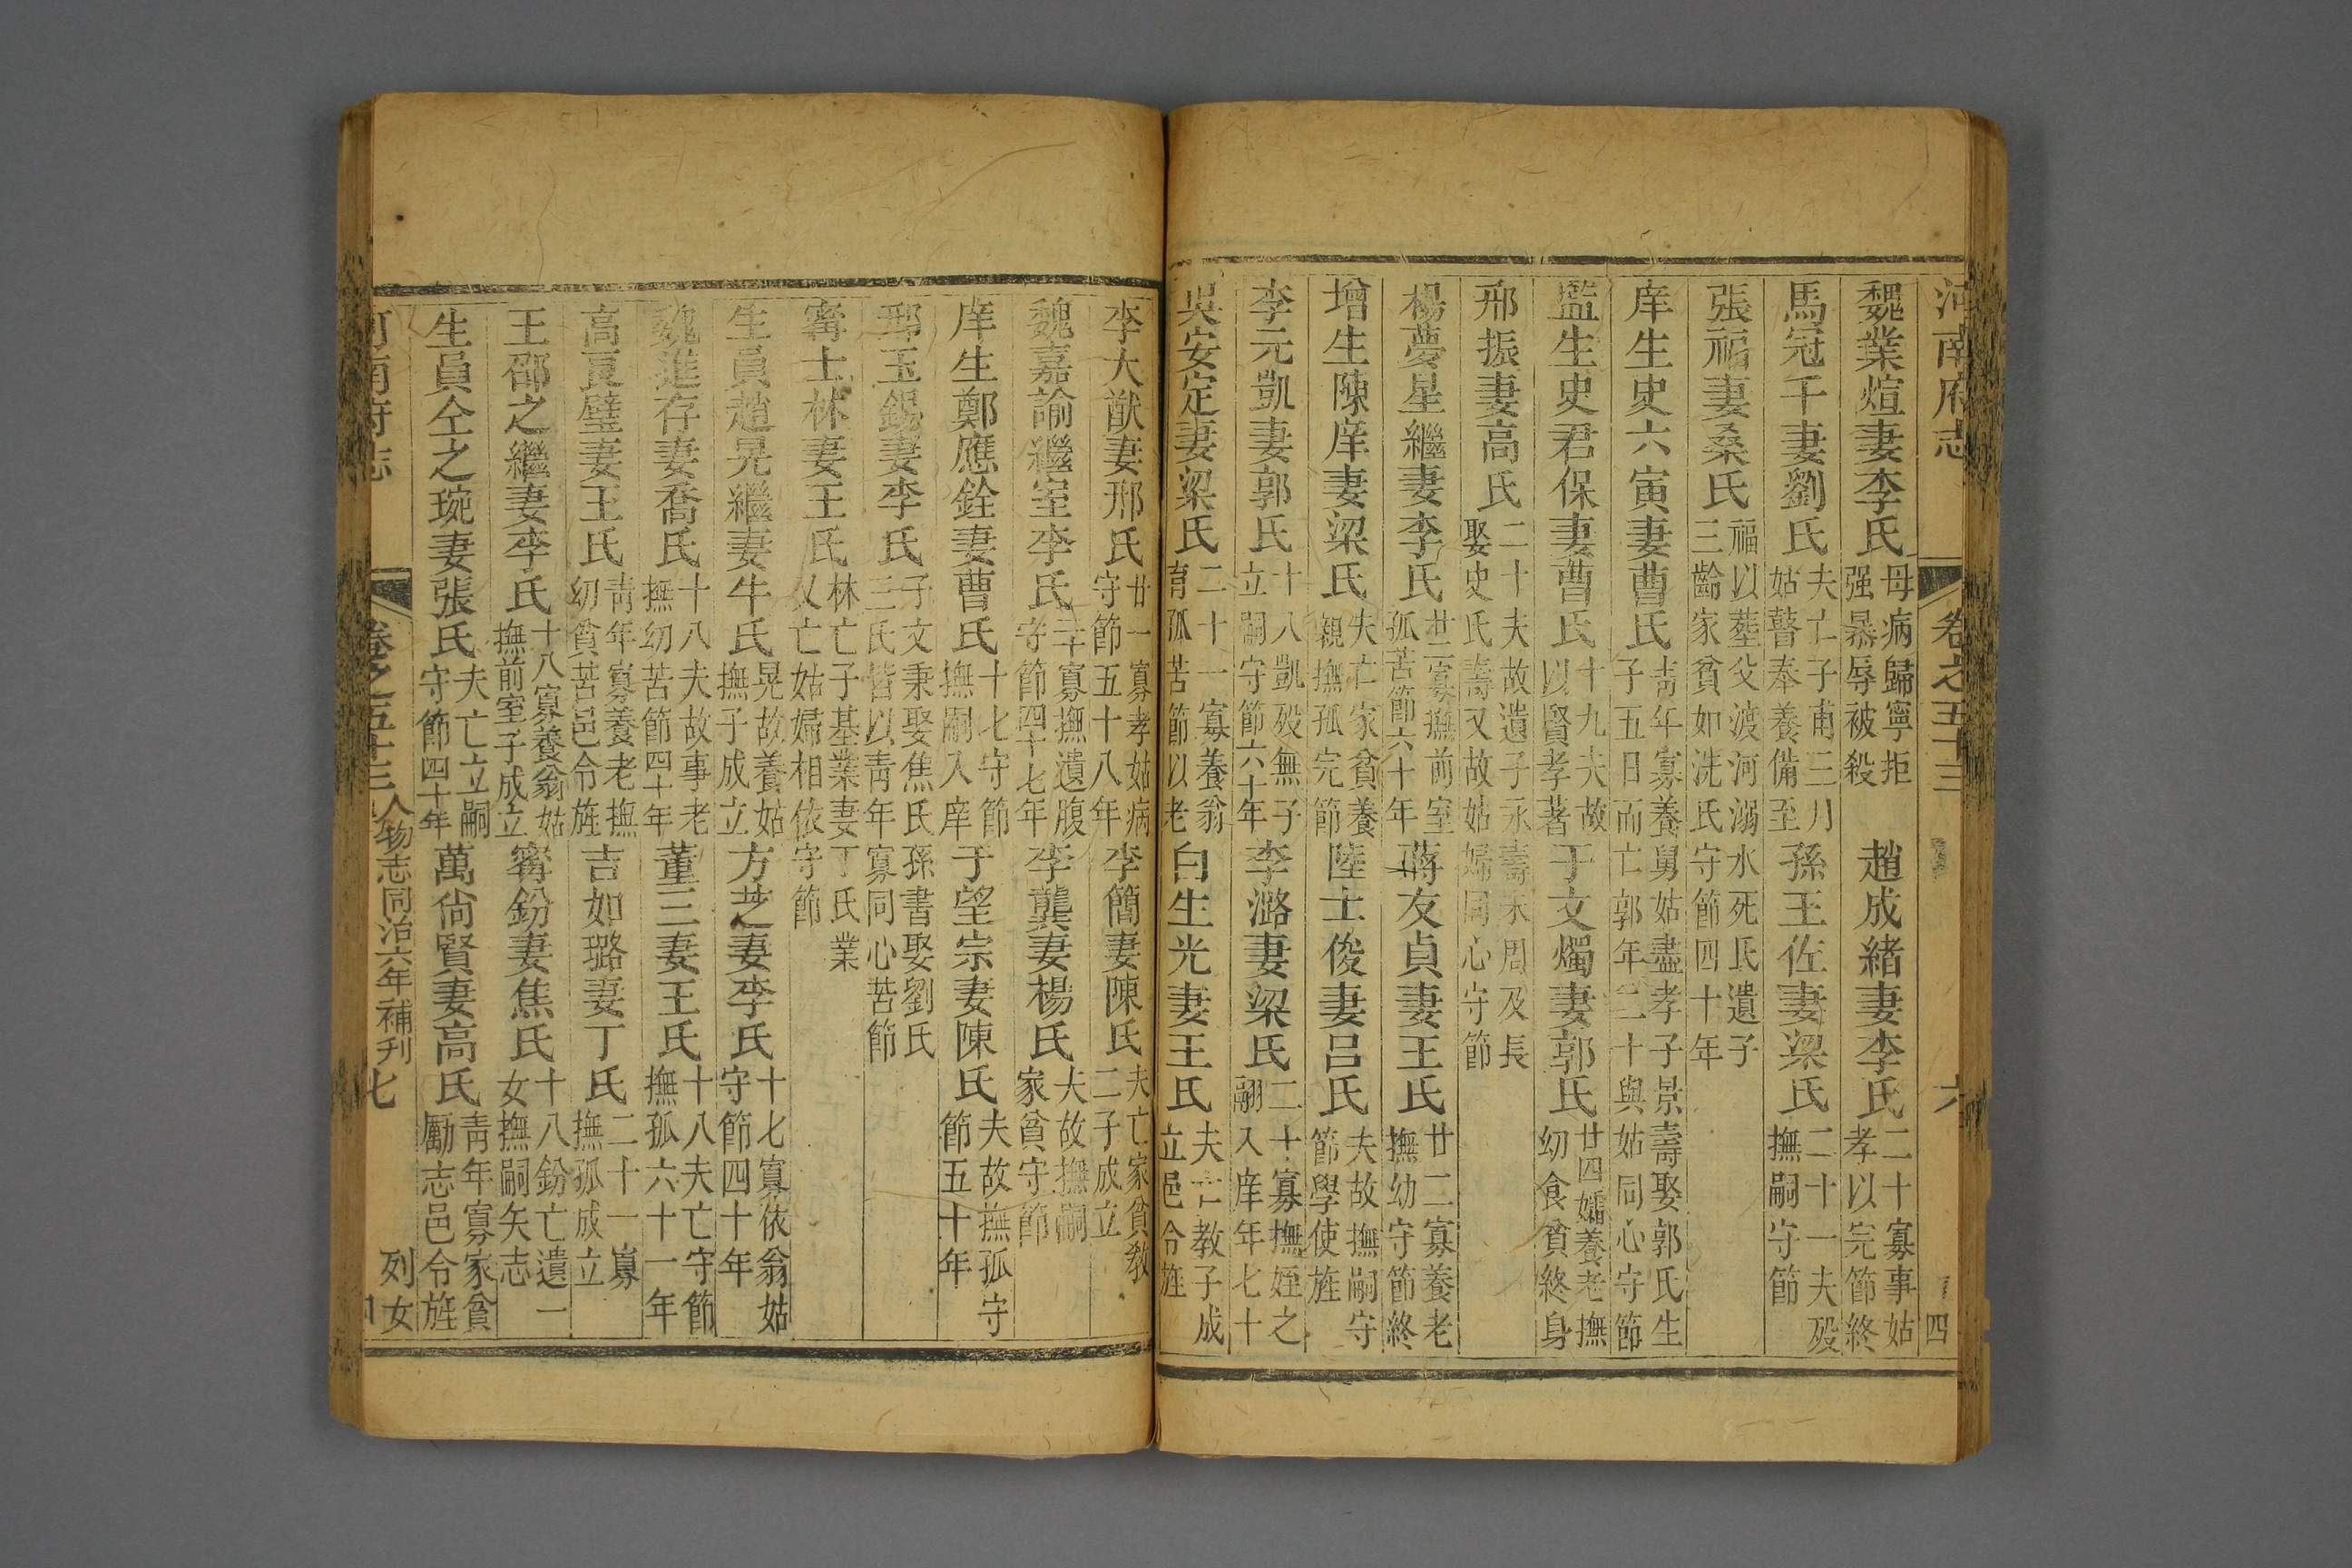 河南府志 卷之五十三 六 四
魏業煊妻李氏 母病歸寧拒强暴辱被殺 趙成緒妻李氏 二十寡事姑孝以完節終
馬冠千妻劉氏 夫亡子甫三月姑瞽奉養備至 孫王佐妻梁氏 二十一夫歿撫嗣守節
張福妻桑氏 福以葬父渡河溺水死氏遺子三齡家貧如洗氏守節四十年
庠生史六寅妻曹氏 靑年寡養舅姑盡孝子景壽娶郭氏生子五日而亡郭年二十與姑同心守節
監生史君保妻曹氏 十九夫故以賢孝著 于文燭妻郭氏 廿四孀養老撫幼食貧終身
邢振妻高氏 二十夫故遺子永壽未周及長娶史氏壽又故姑婦同心守節
楊夢星繼妻李氏 廿二寡撫前室孤苦節六十年 蔣友貞妻王氏 廿二寡養老撫幼守節終
增生陳庠妻梁氏 夫亡家貧養親撫孤完節 陸士俊妻呂氏 夫故撫嗣守節學使旌
李元凱妻郭氏 十八凱歿無子立嗣守節六十年 李潞妻梁氏 二十寡撫姪之翮入庠年七十
吳安定妻梁氏 二十一寡養翁育孤苦節以老 白生光妻王氏 夫亡教子成立邑令旌
李大猷妻邢氏 廿一寡孝姑病守節五十八年 李簡妻陳氏 夫亡家貧敎二子成立
魏嘉諭繼室李氏 二十寡撫遺腹守節四十七年 李龔妻楊氏 夫故撫嗣家貧守節
庠生鄭應銓妻曹氏 十七守節撫嗣入庠 于望宗妻陳氏 夫故撫孤守節五十年
邢玉錫妻李氏 子文秉娶焦氏孫書娶劉氏三氏皆以靑年寡同心苦節
甯士林妻王氏 林亡子基業妻丁氏業又亡姑婦相依守節
生員趙晃繼妻牛氏 晃故養姑撫子成立 方芝妻李氏 十七寡依翁姑守節四十年
魏進存妻喬氏 十八夫故事老撫幼苦節四十年 董三妻王氏 十八夫亡守節撫孤六十一年
高夏璧妻王氏 靑年寡養老撫幼貧苦邑令旌 吉如璐妻丁氏 二十一寡撫孤成立
王邵之繼妻李氏 十八寡養翁姑撫前室子成立 甯鈖妻焦氏 十八鈖亡遺一女撫嗣矢志
生員仝之琬妻張氏 夫亡立嗣守節四十年 萬尙賢妻高氏 靑年寡家貧勵志邑令旌
河南府志 卷之五十三 人物志同治六年補刋 七 列女